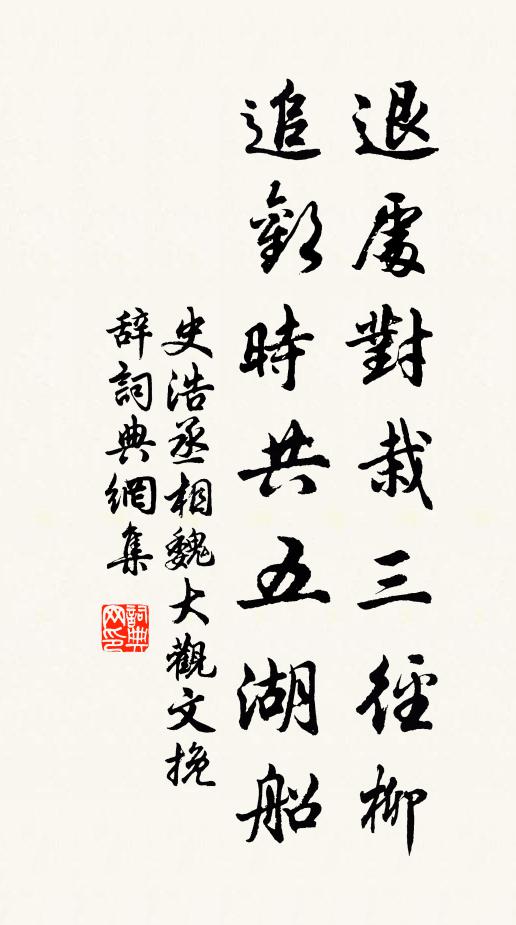 退處對栽三徑柳
追歡時共五湖船
史浩丞相魏大觀文挽
辭詞典網集
詞典網印